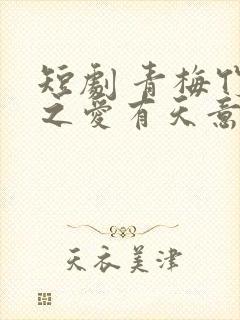 短劇青梅
之愛有天意
天衣美津